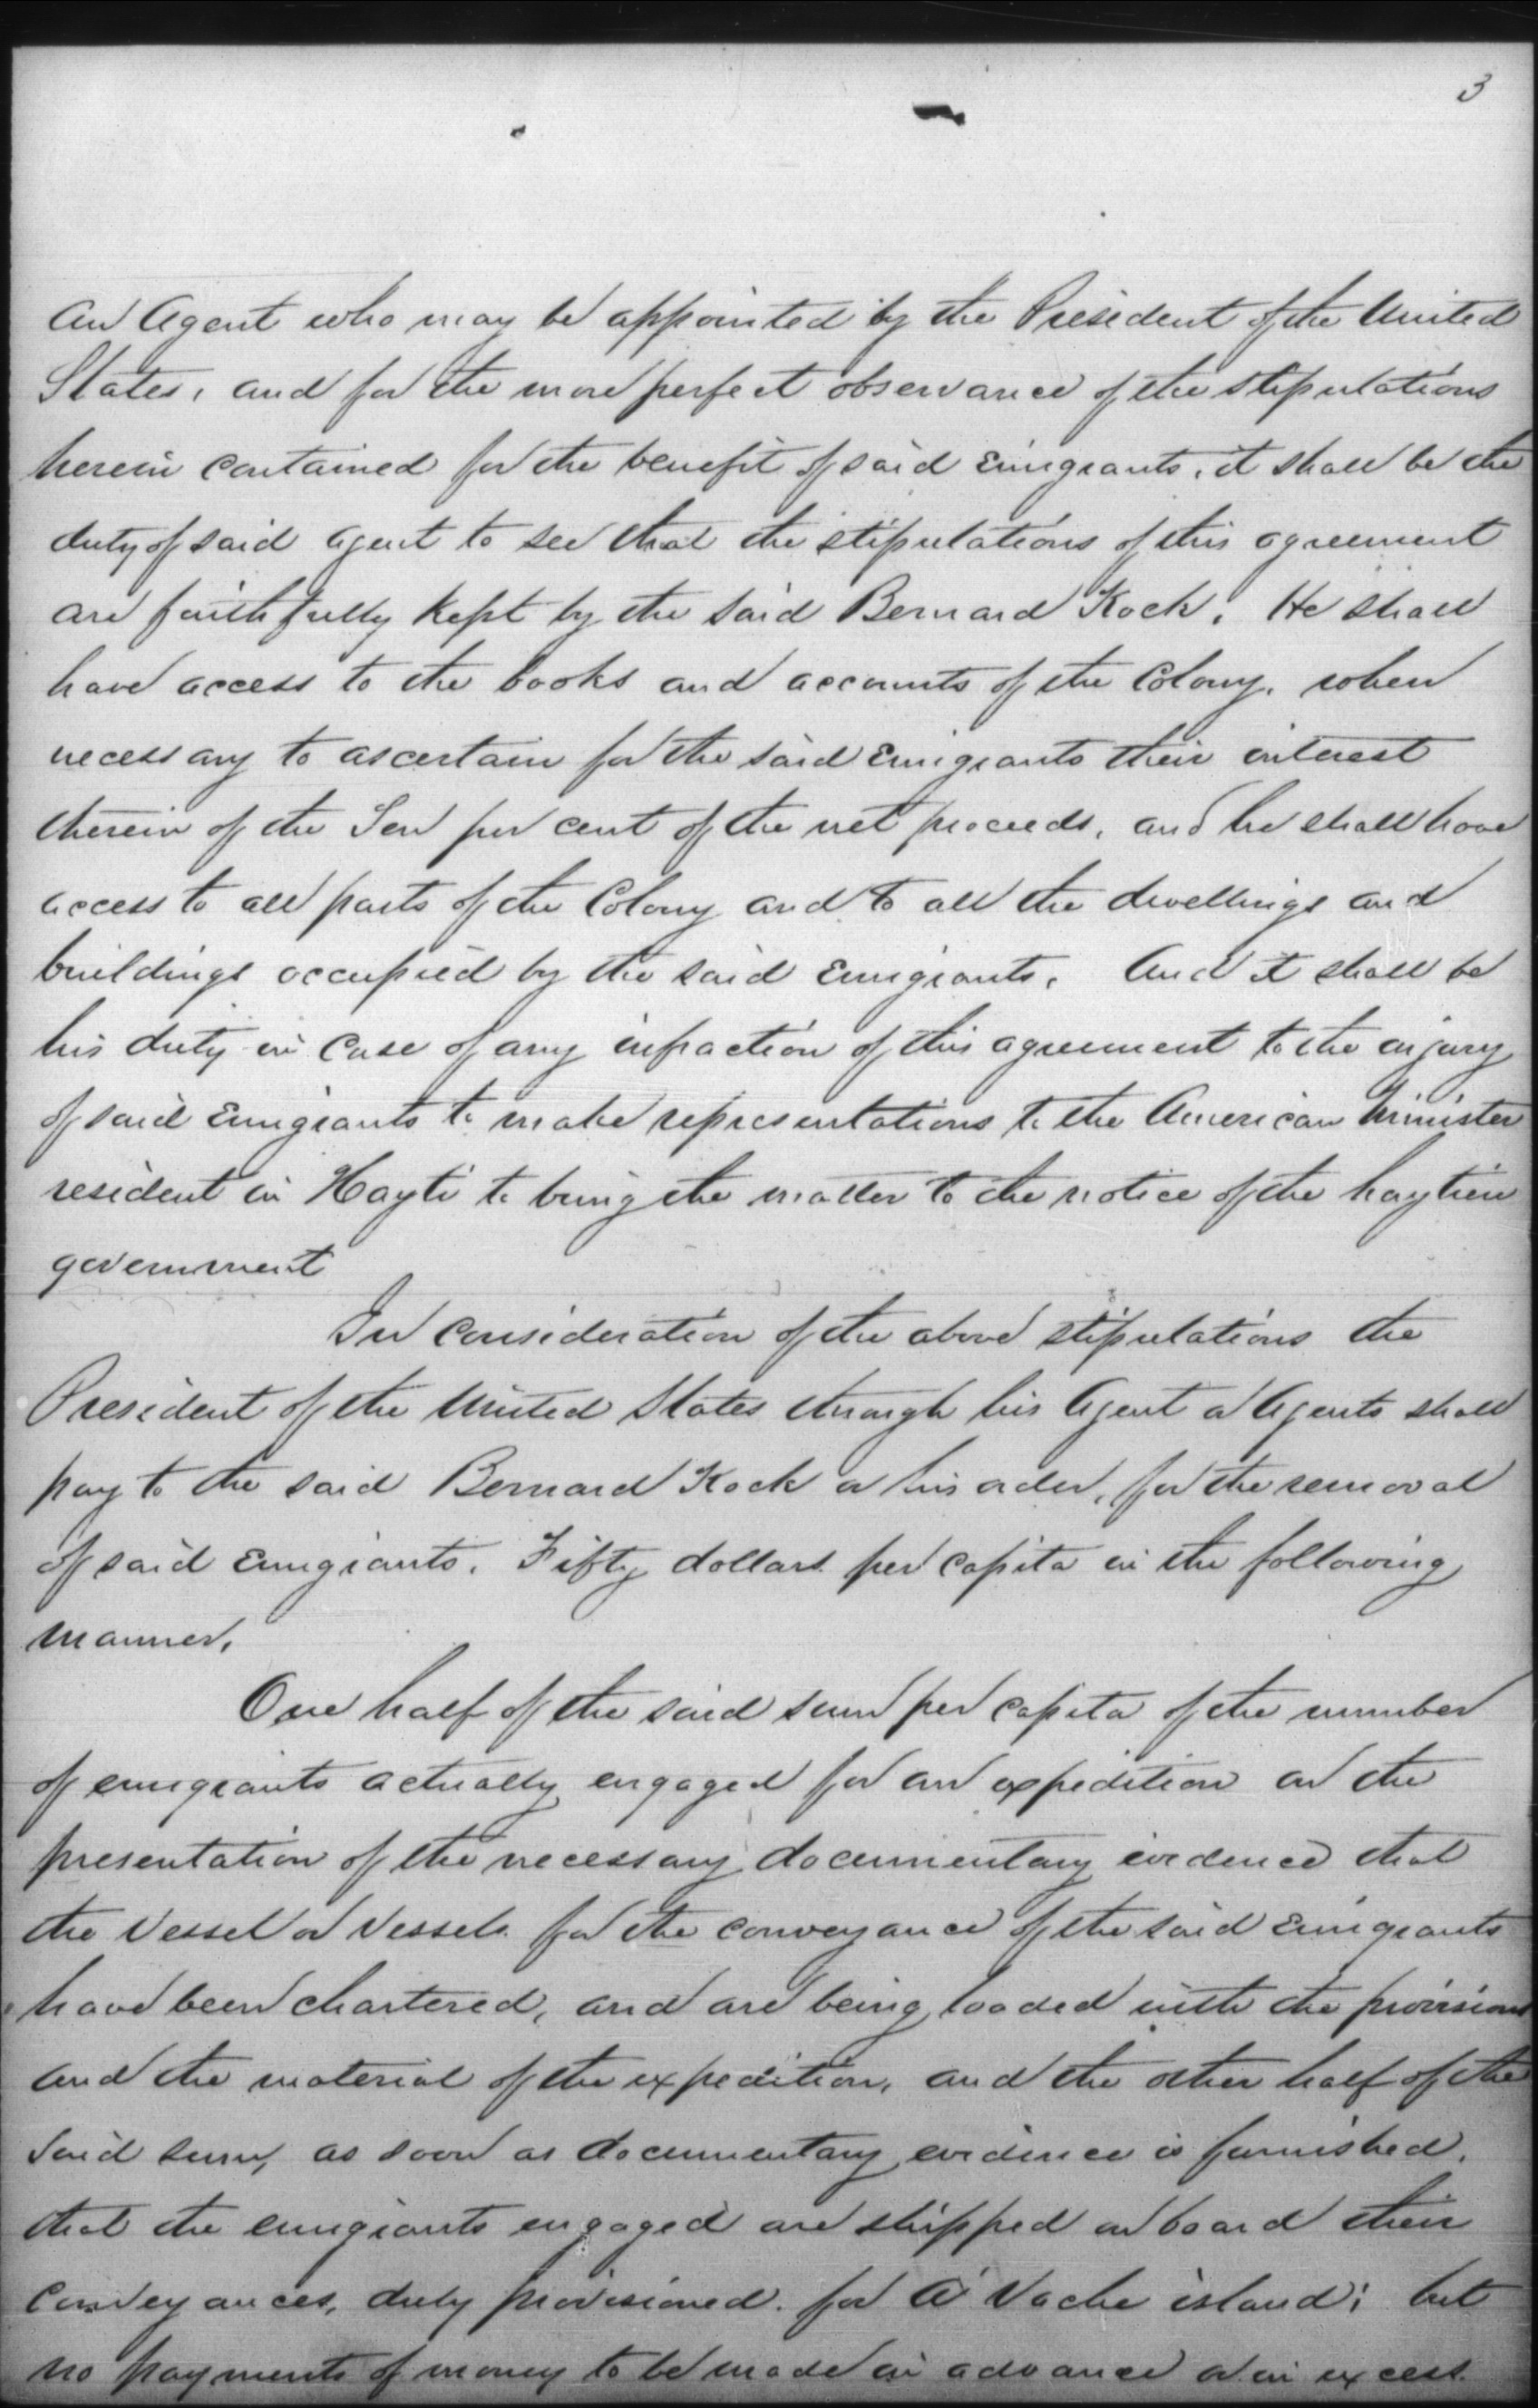 3
an Agent who may be appointed by the President of the United
States, and for the more perfect observance of the stipulations
herein contained for the benefit of said Emigrants, it shall be the
duty of said agent to see that the stipulations of this agreement
are faithfully kept by the said Bernard Kock. He shall
have access to the books and accounts of the Colony, when
necessary to ascertain for the said Emigrants their interest
therein of the Ten per cent of the net proceeds, and he shall have
access to all parts of the Colony and to all the dwellings and
buildings occupied by the said Emigrants. And it shall be
his duty in case of any infraction of this agreement to the injury
of said Emigrants to make representations to the American Minister
resident in Hayti to bring the matter to the notice of the haytien
government
In consideration of the above stipulations the
President of the United States through his Agent or Agents shall
pay to the said Bernard Kock or his order, for the removal
of said Emigrants. Fifty dollars per capita in the following
manner.
One half of the said sum per capita of the number
of emigrants actually engaged for an expedition on the
presentation of the necessary documentary evidence that
the Vessel or Vessels for the conveyance of the said Emigrants
have been chartered, and are being loaded with the provisions
and the material of the expedition, and the other half of the
said sum, as soon as documentary evidence is furnished,
that the emigrants engaged are shipped on board their
Conveyances, duly provisioned. for A' Vache island; but
no payments of money to be made in advance or in excess